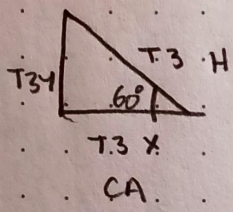 T.3 H
T3y
60°
T.3 X
CA